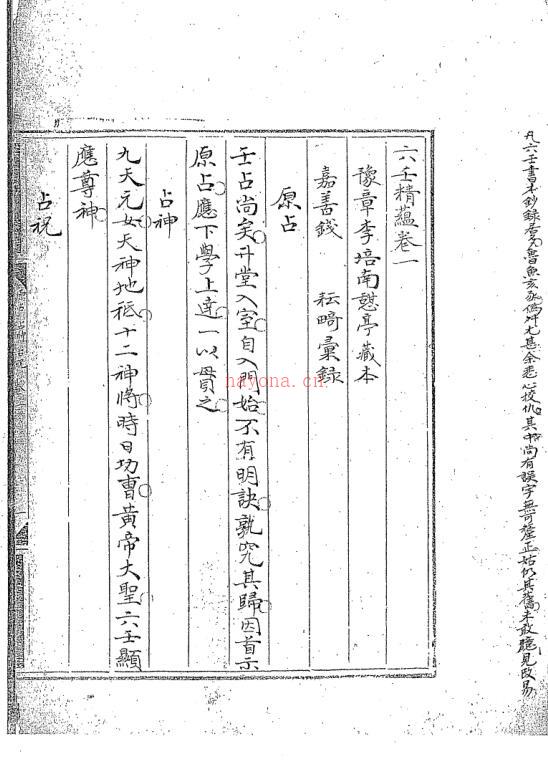 凡六壬書本鈔錄居多魯魚亥豕偽舛尤甚余悉心校仇其中尚有誤字無可釐正姑仍其舊未敢臆見改易
六壬精蘊卷一
豫章李培南憇亭藏本
嘉善錢 耘畸彙錄
原占
壬占尚矣升堂入室自入門始不有明訣孰究其歸因首示
原占應下學上達一以貫之
占神
九天元女天神地祗十二神將時日功曹黃帝大聖六壬顯
應尊神
占祝
nayona.cn